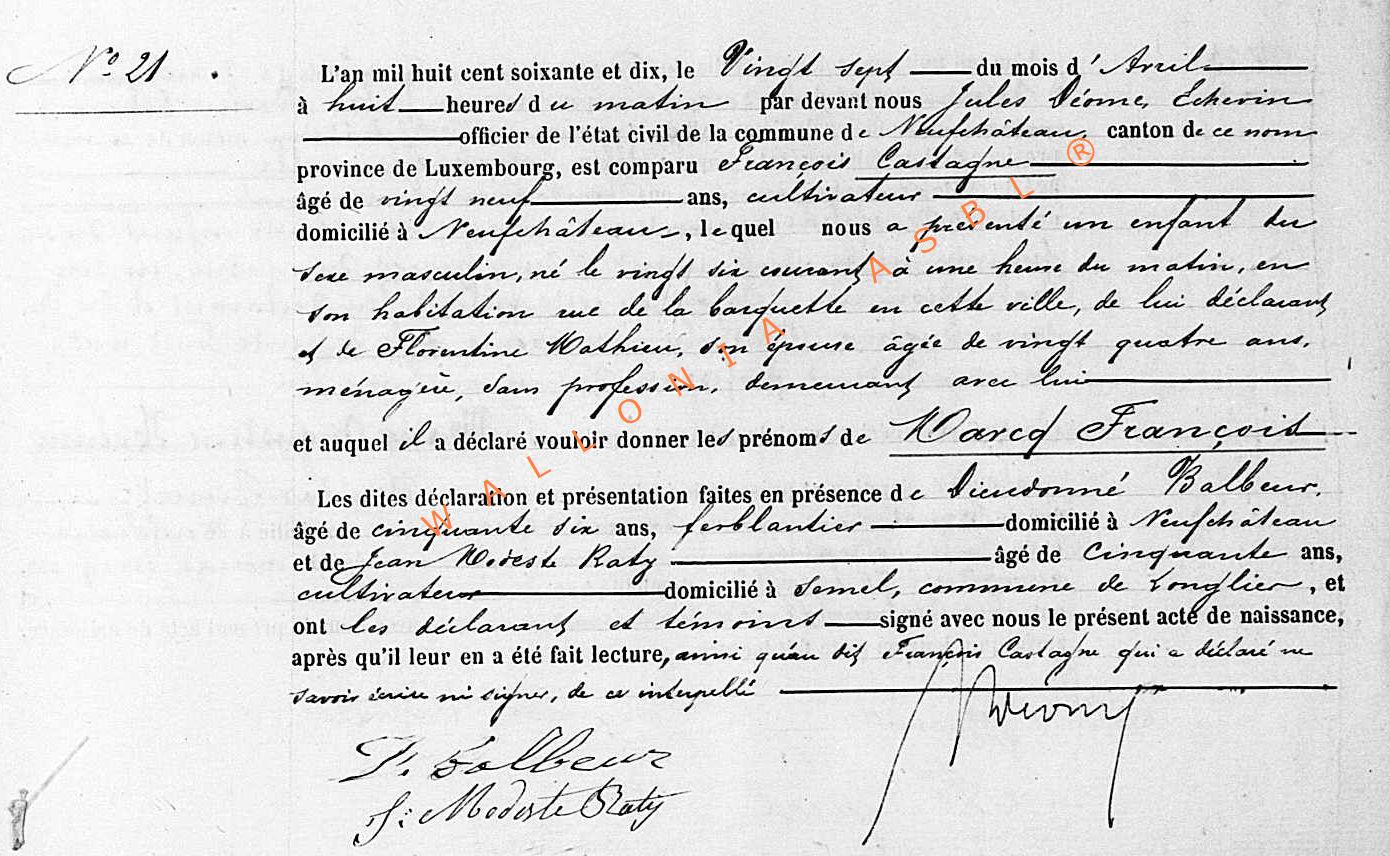 N° 21.
L'an mil huit cent soixante et dix, le Vingt sept du mois d'Avril
à huit heures du matin par devant nous Jules Déome, Echevin
officier de l'état civil de la commune de Neufchâteau, canton de ce nom
province de Luxembourg, est comparu François Castagne
âgé de vingt neuf ans, cultivateur
domicilié à Neufchâteau, lequel nous a présenté un enfant du
sexe masculin, né le vingt six courant à une heure du matin, en
son habitation rue de la barquette en cette ville, de lui déclarant
et de Florentine Mathieu, son épouse âgée de vingt quatre ans,
ménagère, sans profession, demeurant avec lui
et auquel il a déclaré vouloir donner les prénoms de Marcq François
Les dites déclaration et présentation faites en présence de Dieudonné Balbeur,
âgé de cinquante six ans, ferblantier domicilié à Neufchâteau
et de Jean Modeste Raty âgé de Cinquante ans,
cultivateur domicilié à Semel, commune de Longlier, et
ont les déclarant et témoins signé avec nous le présent acte de naissance,
après qu'il leur en a été fait lecture, ainsi qu'au dit François Castagne qui a déclaré ne
savoir écrire ni signer, de ce interpellé
D. Balbeur
J: Modeste Raty
WALLONIA ASBL ®